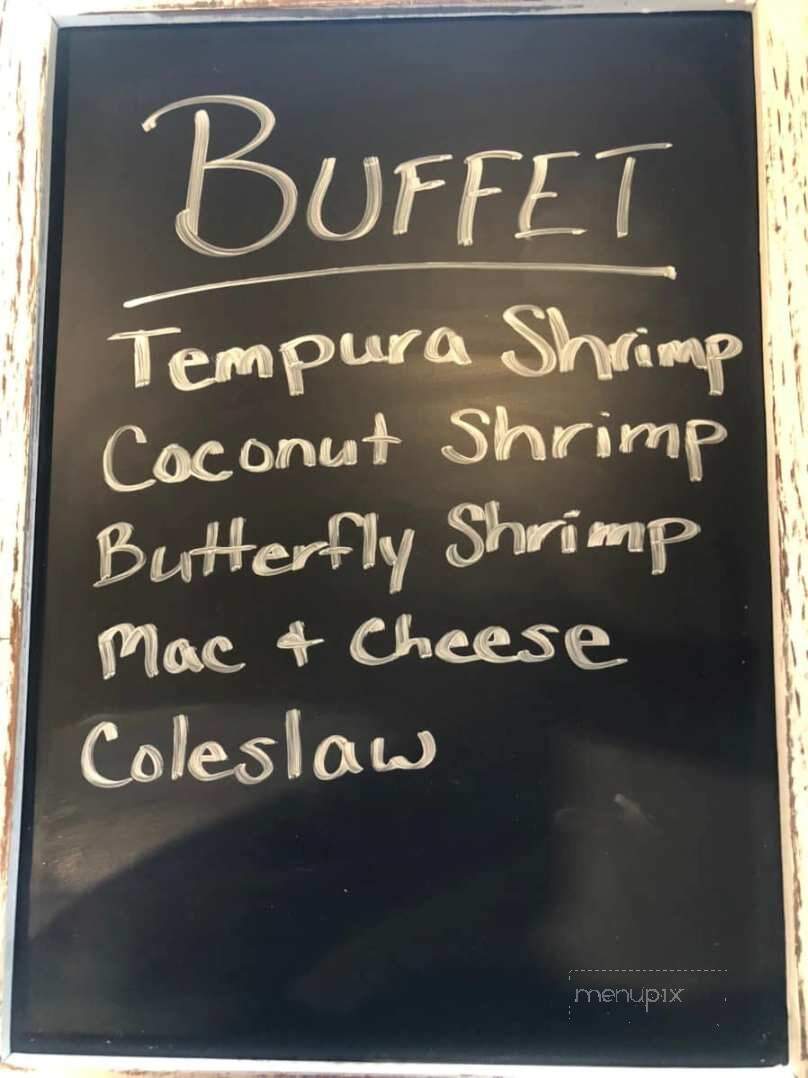 BUFFET
Tempura Shrimp
Coconut Shrimp
Butterfly Shrimp
Mac + Cheese
Coleslaw
menupix